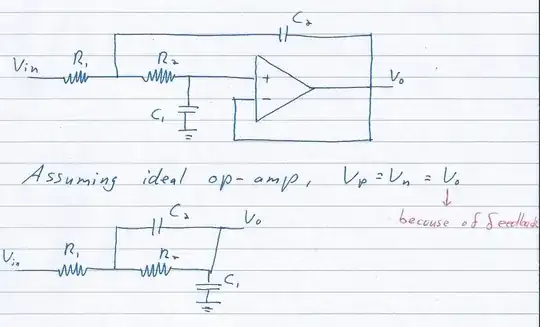 C₂
Vin R₁ R₂
+
V₀
C₁
−
Assuming ideal op-amp, Vp = Vn = V₀
because of feedback
C₂ V₀
Vin R₁ R₂ C₁